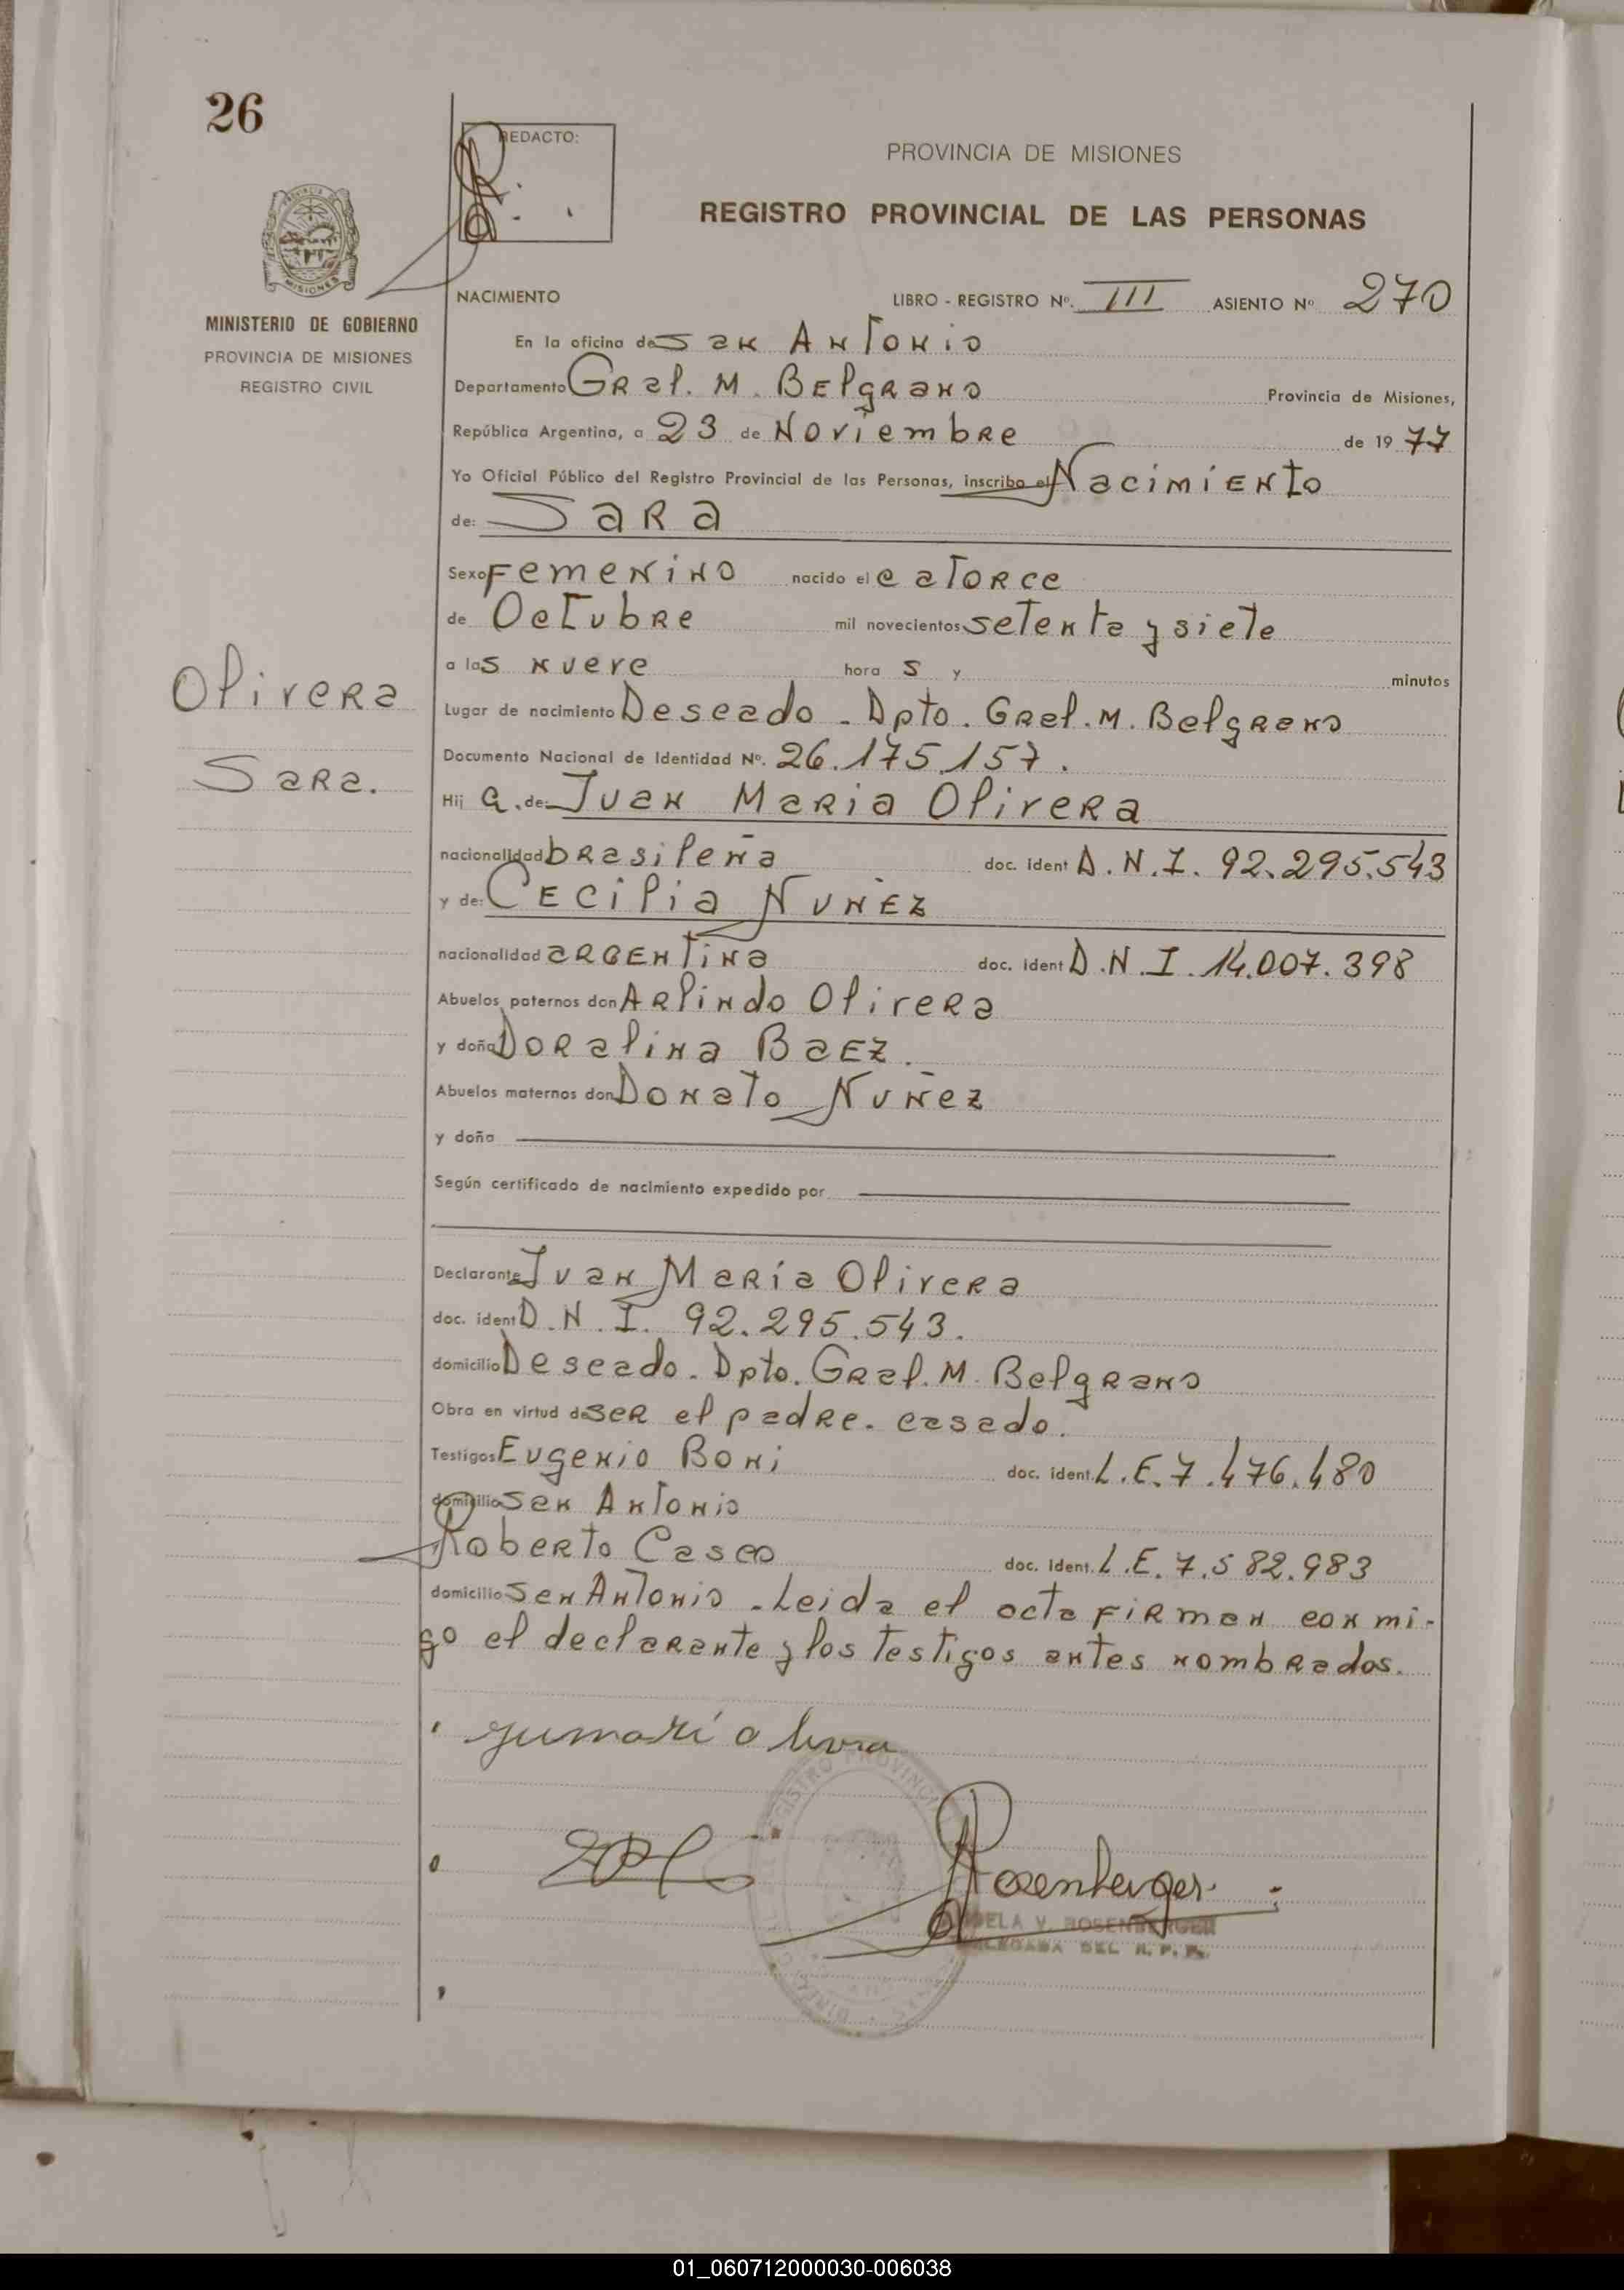 26
REDACTO:
PROVINCIA DE MISIONES
REGISTRO PROVINCIAL DE LAS PERSONAS
MISIONES
MINISTERIO DE GOBIERNO
PROVINCIA DE MISIONES
REGISTRO CIVIL
NACIMIENTO LIBRO - REGISTRO Nº. III ASIENTO Nº 270
En la oficina de San Antonio
Departamento Gral. M. Belgrano Provincia de Misiones,
República Argentina, a 23 de Noviembre de 1977
Yo Oficial Público del Registro Provincial de las Personas, inscribo el Nacimiento
de: Sara
Sexo Femenino nacido el catorce
de Octubre mil novecientos setenta y siete
a las nueve horas y minutos
Olivera
Sara.
Lugar de nacimiento Deseado - Dpto. Gral. M. Belgrano
Documento Nacional de Identidad Nº. 26.175.157.
Hija. de: Juan Maria Olivera
nacionalidad brasileña doc. ident D.N.I. 92.295.543
y de: Cecilia Nuñez
nacionalidad argentina doc. ident D.N.I. 14.007.398
Abuelos paternos don Arlindo Olivera
y doña Doralina Baez.
Abuelos maternos don Donato Nuñez
y doña
Según certificado de nacimiento expedido por
Declarante Juan María Olivera
doc. ident D.N.I. 92.295.543.
domicilio Deseado. Dpto. Gral. M. Belgrano
Obra en virtud de ser el padre. casado.
Testigos Eugenio Boni doc. ident. L.E. 7.476.480
domicilio San Antonio
Roberto Casco doc. ident. L.E. 7.582.983
domicilio San Antonio - Leida el acta firman conmi-
go el declarante y los testigos antes nombrados.
Rosenberger
ROSENBERGER
DEL R. P. P.
01_060712000030-006038